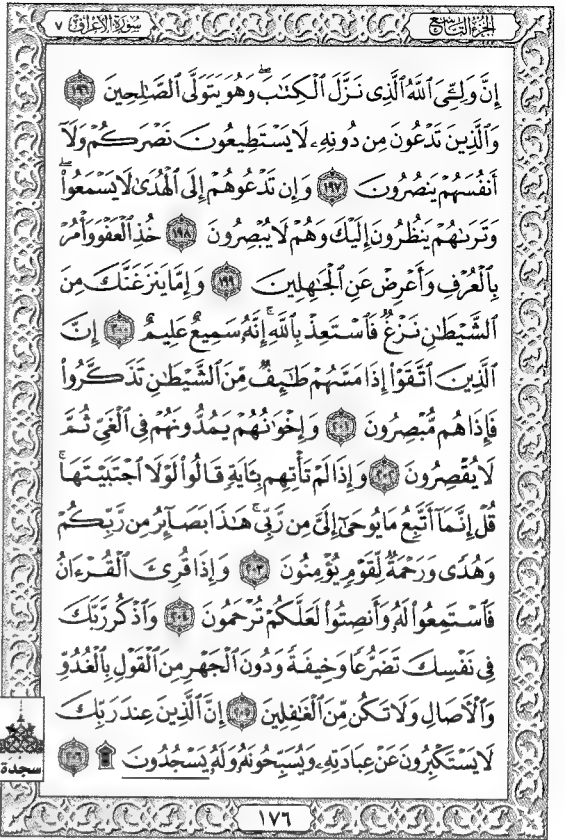 الجزء التاسع
سورة الأعراف ٧
إِنَّ وَلِـِّۧيَ ٱللَّهُ ٱلَّذِى نَزَّلَ ٱلْكِتَـٰبَ ۖ وَهُوَ يَتَوَلَّى ٱلصَّـٰلِحِينَ ١٩٦
وَٱلَّذِينَ تَدْعُونَ مِن دُونِهِۦ لَا يَسْتَطِيعُونَ نَصْرَكُمْ وَلَآ
أَنفُسَهُمْ يَنصُرُونَ ١٩٧ وَإِن تَدْعُوهُمْ إِلَى ٱلْهُدَىٰ لَا يَسْمَعُوا۟ ۖ
وَتَرَىٰهُمْ يَنظُرُونَ إِلَيْكَ وَهُمْ لَا يُبْصِرُونَ ١٩٨ خُذِ ٱلْعَفْوَ وَأْمُرْ
بِٱلْعُرْفِ وَأَعْرِضْ عَنِ ٱلْجَـٰهِلِينَ ١٩٩ وَإِمَّا يَنزَغَنَّكَ مِنَ
ٱلشَّيْطَـٰنِ نَزْغٌ فَٱسْتَعِذْ بِٱللَّهِ ۚ إِنَّهُۥ سَمِيعٌ عَلِيمٌ ٢٠٠ إِنَّ
ٱلَّذِينَ ٱتَّقَوْا۟ إِذَا مَسَّهُمْ طَـٰٓئِفٌ مِّنَ ٱلشَّيْطَـٰنِ تَذَكَّرُوا۟
فَإِذَا هُم مُّبْصِرُونَ ٢٠١ وَإِخْوَٰنُهُمْ يَمُدُّونَهُمْ فِى ٱلْغَىِّ ثُمَّ
لَا يُقْصِرُونَ ٢٠٢ وَإِذَا لَمْ تَأْتِهِم بِـَٔايَةٍ قَالُوا۟ لَوْلَا ٱجْتَبَيْتَهَا ۚ
قُلْ إِنَّمَآ أَتَّبِعُ مَا يُوحَىٰٓ إِلَىَّ مِن رَّبِّى ۚ هَـٰذَا بَصَآئِرُ مِن رَّبِّكُمْ
وَهُدًى وَرَحْمَةٌ لِّقَوْمٍ يُؤْمِنُونَ ٢٠٣ وَإِذَا قُرِئَ ٱلْقُرْءَانُ
فَٱسْتَمِعُوا۟ لَهُۥ وَأَنصِتُوا۟ لَعَلَّكُمْ تُرْحَمُونَ ٢٠٤ وَٱذْكُر رَّبَّكَ
فِى نَفْسِكَ تَضَرُّعًا وَخِيفَةً وَدُونَ ٱلْجَهْرِ مِنَ ٱلْقَوْلِ بِٱلْغُدُوِّ
وَٱلْـَٔاصَالِ وَلَا تَكُن مِّنَ ٱلْغَـٰفِلِينَ ٢٠٥ إِنَّ ٱلَّذِينَ عِندَ رَبِّكَ
لَا يَسْتَكْبِرُونَ عَنْ عِبَادَتِهِۦ وَيُسَبِّحُونَهُۥ وَلَهُۥ يَسْجُدُونَ ۩ ٢٠٦
سجدة
١٧٦